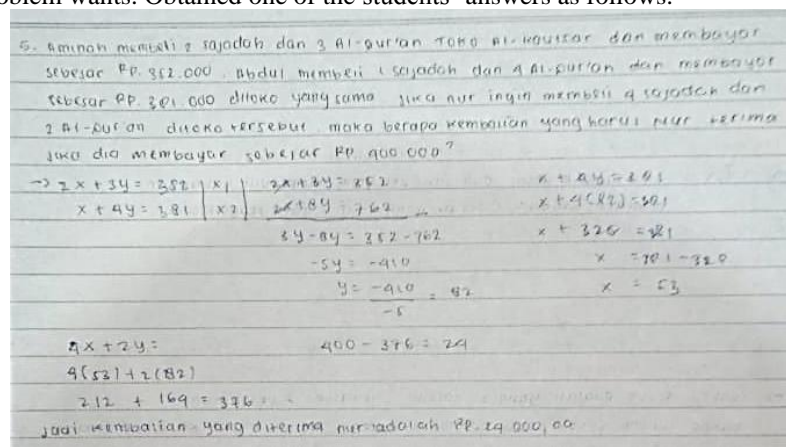 problem wants. Obtained one of the students' answers as follows:
5. Aminah membeli 2 sajadah dan 3 Al-Qur'an Toko Al-Kautsar dan membayar
sebesar Rp. 352.000. Abdul membeli 1 sajadah dan 4 Al-Qur'an dan membayar
sebesar Rp. 381.000 ditoko yang sama jika nur ingin membeli 4 sajadah dan
2 Al-Qur'an ditoko tersebut maka berapa kembalian yang harus Nur terima
jika dia membayar sebesar Rp 400.000?
→ 2x + 3y = 352 | x1 | 2x + 3y = 352
x + 4y = 381 | x2 | 2x + 8y = 762 -
3y - 8y = 352 - 762
-5y = -410
y = -410/-5 = 82
x + 4y = 381
x + 4(82) = 381
x + 328 = 381
x = 381 - 328
x = 53
4x + 2y =
4(53) + 2(82)
212 + 164 = 376
400 - 376 = 24
Jadi kembalian yang diterima nur adalah Rp. 24.000,00